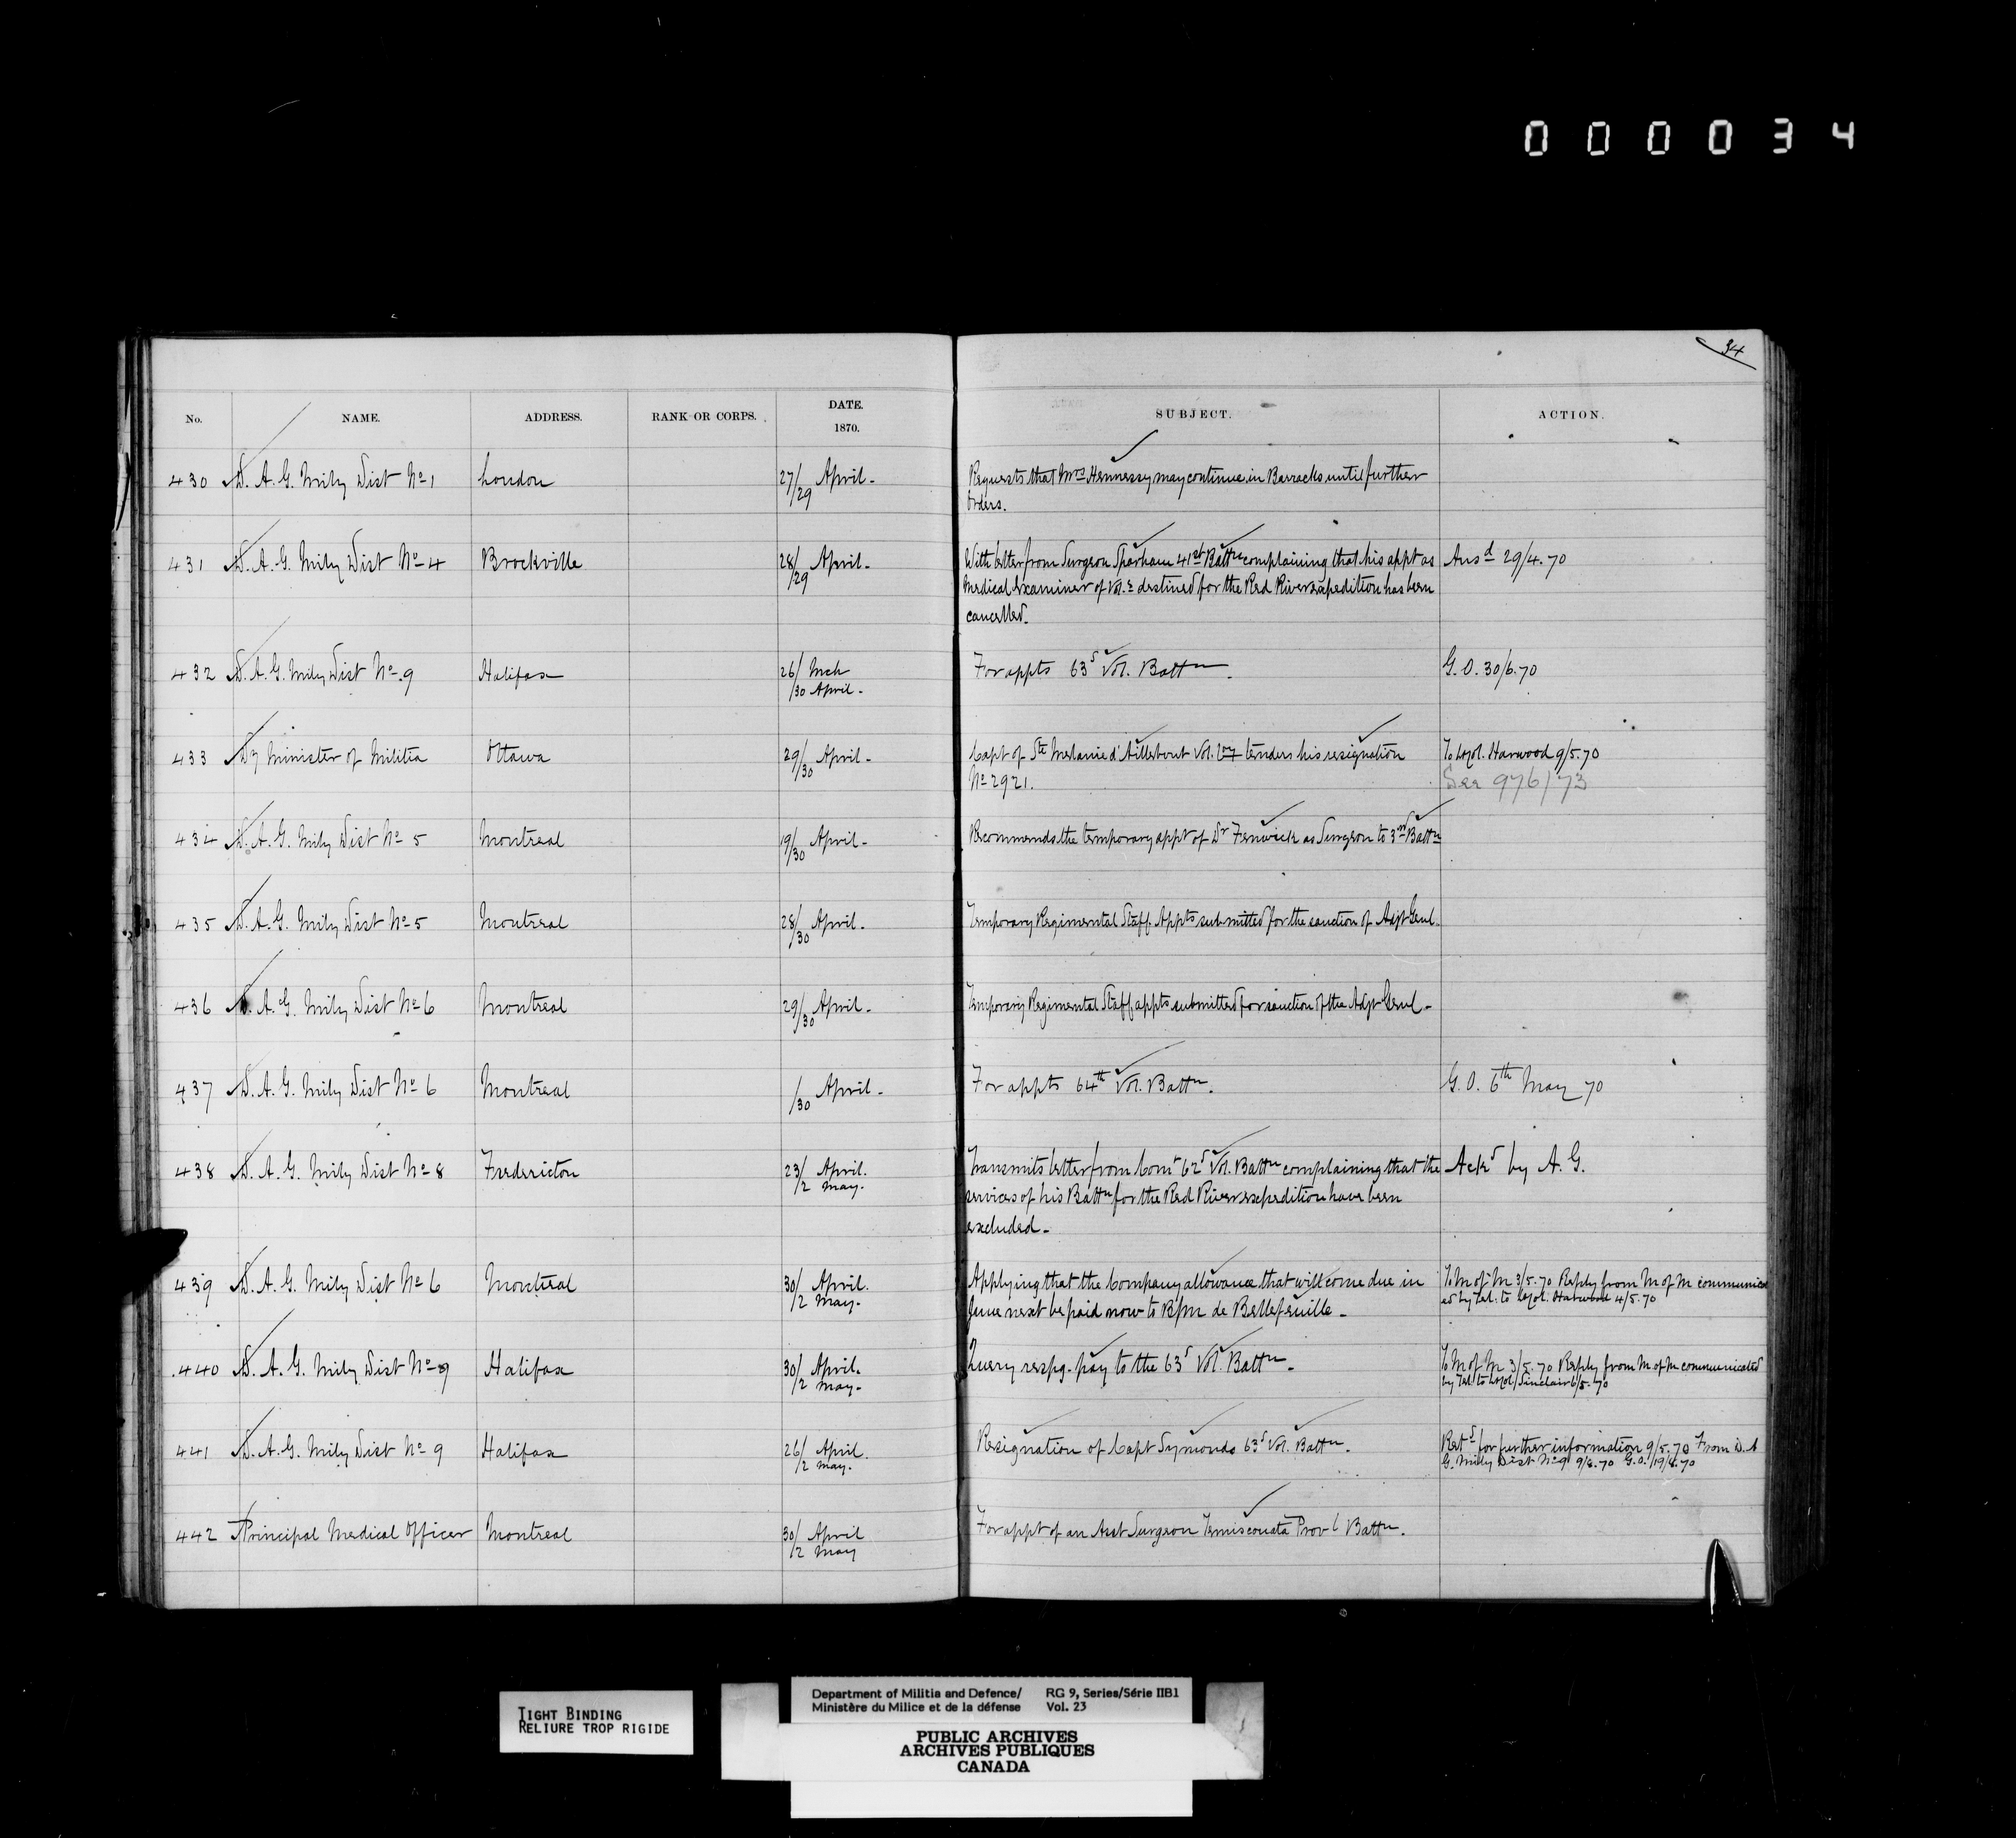 000034
34
No. NAME. ADDRESS. RANK OR CORPS. DATE. 1870. SUBJECT. ACTION.
430 D. A. G. Mily Dist No 1 London 27/29 April - Requests that Mrs Hennessy may continue in Barracks until further
orders.
431 D. A. G. Mily Dist No 4 Brockville 28/29 April - With letter from Surgeon Sparham 41st Battn complaining that his appt as Ansd 29/4.70
Medical Examiner of Vols destined for the Red River expedition has been
cancelled.
432 D. A. G. Mily Dist No 9 Halifax 26/ Mch For appts 63d Vol. Battn. G. O. 30/6.70
/30 April -
433 Dy Minister of Militia Ottawa 29/30 April - Capt of Ste Melanie d'Aillebout Vol. Coy tenders his resignation To Lt Col. Harwood 9/5.70
No 2921. See 976/73
434 D. A. G. Mily Dist No 5 Montreal 19/30 April - Recommends the temporary appt of Dr Fenwick as Surgeon to 3rd Battn
435 D. A. G. Mily Dist No 5 Montreal 28/30 April - Temporary Regimental Staff Appts submitted for the sanction of Adjt Genl.
436 D. A. G. Mily Dist No 6 Montreal 29/30 April - Temporary Regimental Staff appts submitted for sanction of the Adjt Genl -
437 D. A. G. Mily Dist No 6 Montreal /30 April - For appts 64th Vol. Battn. G. O. 6th May 70
438 D. A. G. Mily Dist No 8 Fredericton 23/ April. Transmits letter from Comr 62d Vol. Battn complaining that the Ackd by A. G.
/2 May. services of his Battn for the Red River expedition have been
excluded -
439 D. A. G. Mily Dist No 6 Montreal 30/ April. Applying that the Company allowance that will come due in To M of M 3/5.70 Reply from M of M communicat
/2 May. June next be paid now to B/M de Bellefeuille - ed by Tel. to Lt Col. Harwood 4/5.70
440 D. A. G. Mily Dist No 9 Halifax 30/ April. Query respg. pay to the 63d Vol. Battn - To M of M 3/5.70 Reply from M of M communicated
/2 May - by Tel. to Lt Col. Sinclair 6/5.70
441 D. A. G. Mily Dist No 9 Halifax 26/ April. Resignation of Capt Symonds 63d Vol. Battn. Retd for further information 9/5.70 From D. A
/2 May. G. Mily Dist No 9 9/8.70 G. O. 19/8.70
442 Principal Medical Officer Montreal 30/ April For appt of an Asst Surgeon Temiscouata Provl Battn.
/2 May
TIGHT BINDING
RELIURE TROP RIGIDE
Department of Militia and Defence/ RG 9, Series/Série IIB1
Ministère du Milice et de la défense Vol. 23
PUBLIC ARCHIVES
ARCHIVES PUBLIQUES
CANADA